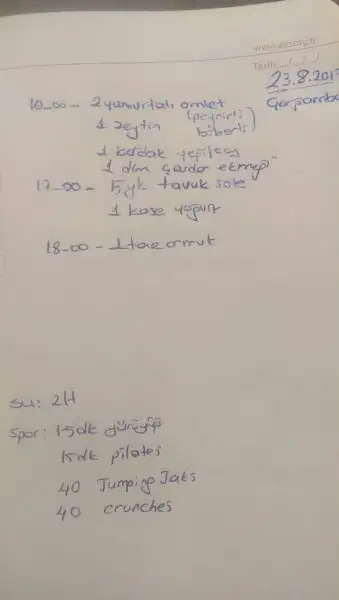 Tarih: .../.../...
23.8.2017
Çarşamba
10_00 - 2 yumurtalı omlet
(peynirli
biberli)
1 zeytin
1 bardak yeşilçay
1 dlm çavdar ekmeği
17_00 - 5 yk tavuk sote
1 kase yoğurt
18_00 - 1 tae armut
Su: 2lt
Spor: 15dk yürüyüş
15dk pilates
40 Jumping Jaks
40 crunches